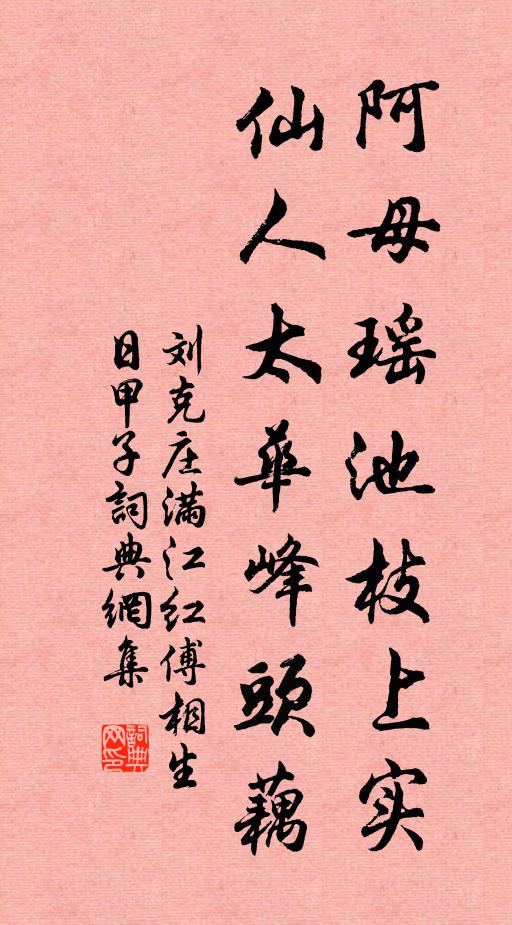 阿母瑶池枝上实
仙人太華峰頭藕
刘克庄满江红傅相生
日甲子詞典網集
詞典网印